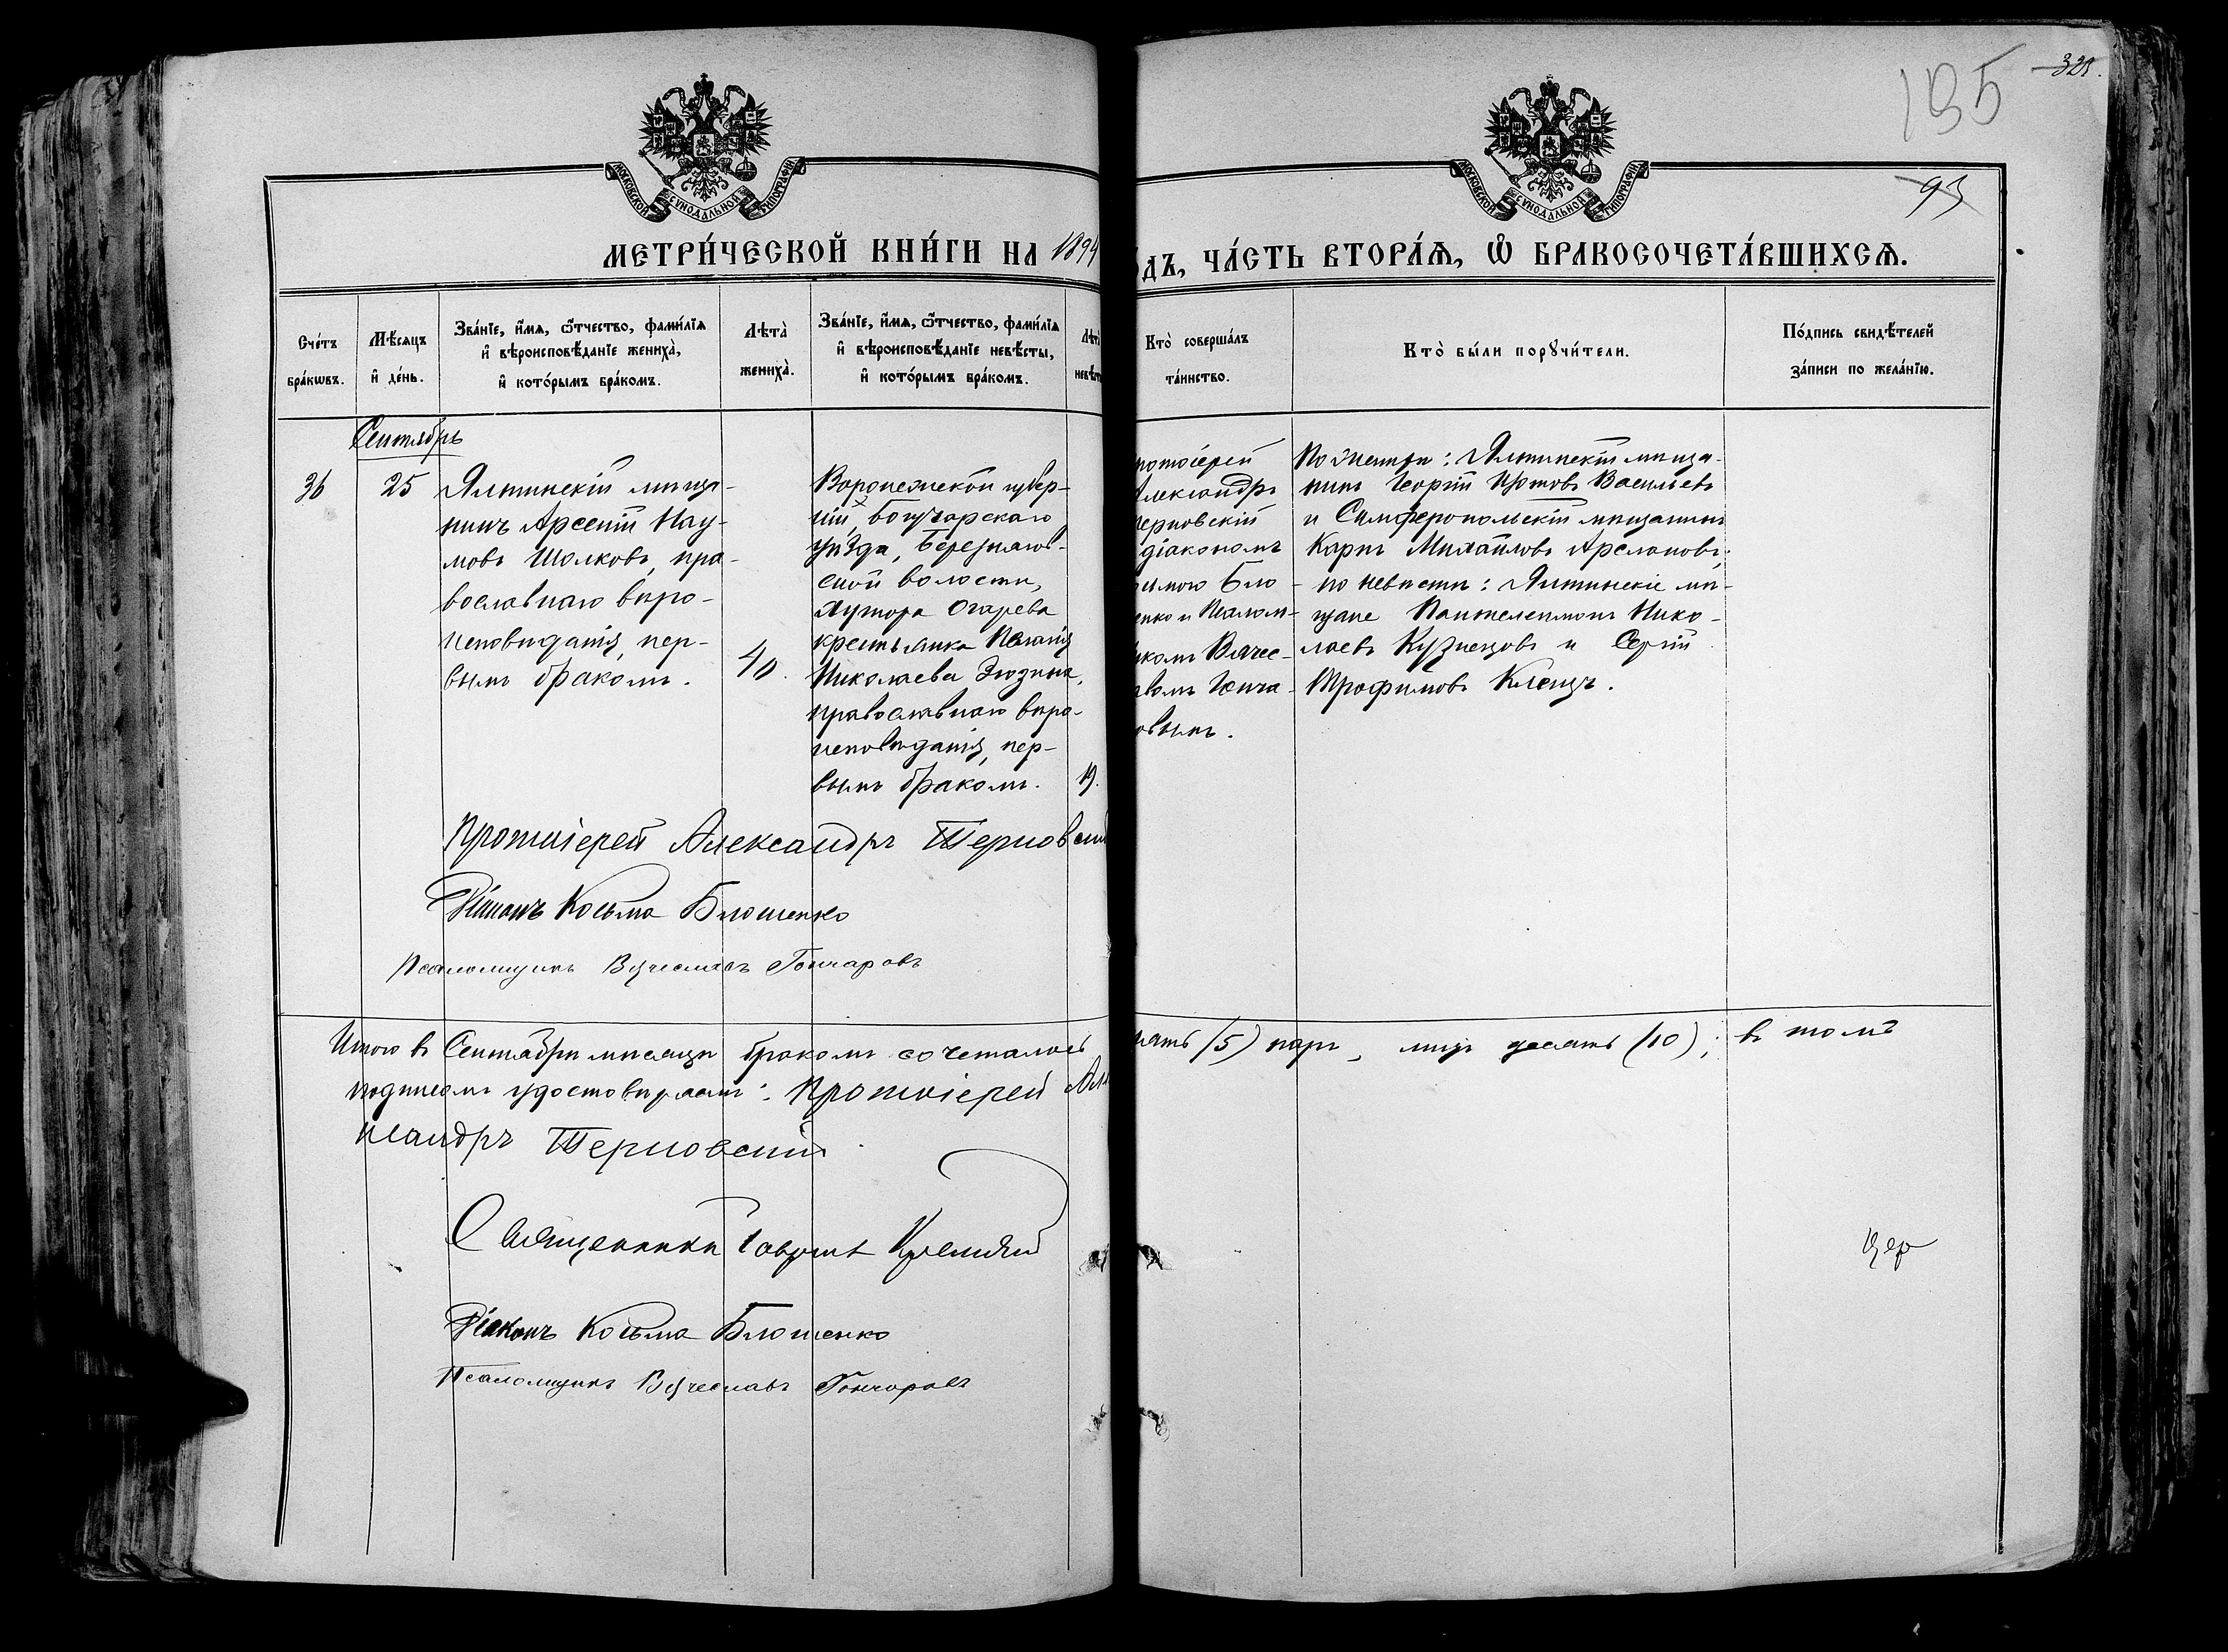 195
321.
93
МОСКОВСКОЙ СѴНОДАЛЬНОЙ ТИПОГРАФІИ
МОСКОВСКОЙ СѴНОДАЛЬНОЙ ТИПОГРАФІИ
МЕТРИ́ЧЕСКОЙ КНИ́ГИ НА 1894
ДЪ, ЧА́СТЬ ВТОРА́Ѧ, Ѡ҆ БРАКОСОЧЕТА́ВШИХСѦ.
Сче́тъ бра́кѡвъ.
Мѣ́сяцъ и҆ де́нь.
Зва́нїе, и҆́мѧ, ѻ҆́тчество, фами́лїѧ
и҆ вѣроисповѣ́данїе жениха̀,
и҆ кото́рымъ бра́комъ.
Лѣта̀ жениха̀.
Зва́нїе, и҆́мѧ, ѻ҆́тчество, фами́лїѧ
и҆ вѣроисповѣ́данїе невѣ́сты,
и҆ кото́рымъ бра́комъ.
Лѣта̀ невѣ́с
Кто̀ соверша́лъ
та́инство.
Кто̀ бы́ли порꙋчи́тели.
По́дпись свидѣ́телей
за́писи по жела́нїю.
Сентябрь
36
25
Ялтинскій мѣща-
нинъ Арсеній Нау-
мовъ Шолковъ, пра-
вославнаго вѣро-
исповѣданія, пер-
вымъ бракомъ.
40.
Воронежской губер-
ніи, Богучарскаго
уѣзда, Березнягов-
ской волости,
хутора Огарева
крестьянка Пелагія
Николаева Зюзина,
православнаго вѣро-
исповѣданія, пер-
вымъ бракомъ.
19.
ротоіерей
Александръ
ерновскій
діакономъ
зьмою Бло-
енко и Псалом-
комъ Вяче-
авомъ Гонча-
овымъ.
По женихѣ: Ялтинскій мѣща-
нинъ Георгій Васильевъ
и Симферопольскій мѣщанинъ
Карпъ Михайловъ Арслановъ;
по невѣстѣ: Ялтинскіе мѣ-
щане Пантелеимонъ Нико-
лаевъ Кузнецовъ и Сергій
Трофимовъ Клещъ.
Протоіерей Александръ Терновскі
Діаконъ Косьма Блошенко
Псаломщикъ Вячеславъ Гончаровъ
Итого въ Сентябрѣ мѣсяцѣ бракомъ сочеталось
пять (5) паръ, лицъ десять (10); въ томъ
подписомъ удостовѣряемъ: Протоіерей Але
ксандръ Терновскій
Священникъ Гавріилъ
Діаконъ Косьма Блошенко
Псаломщикъ Вячеславъ Гончаровъ